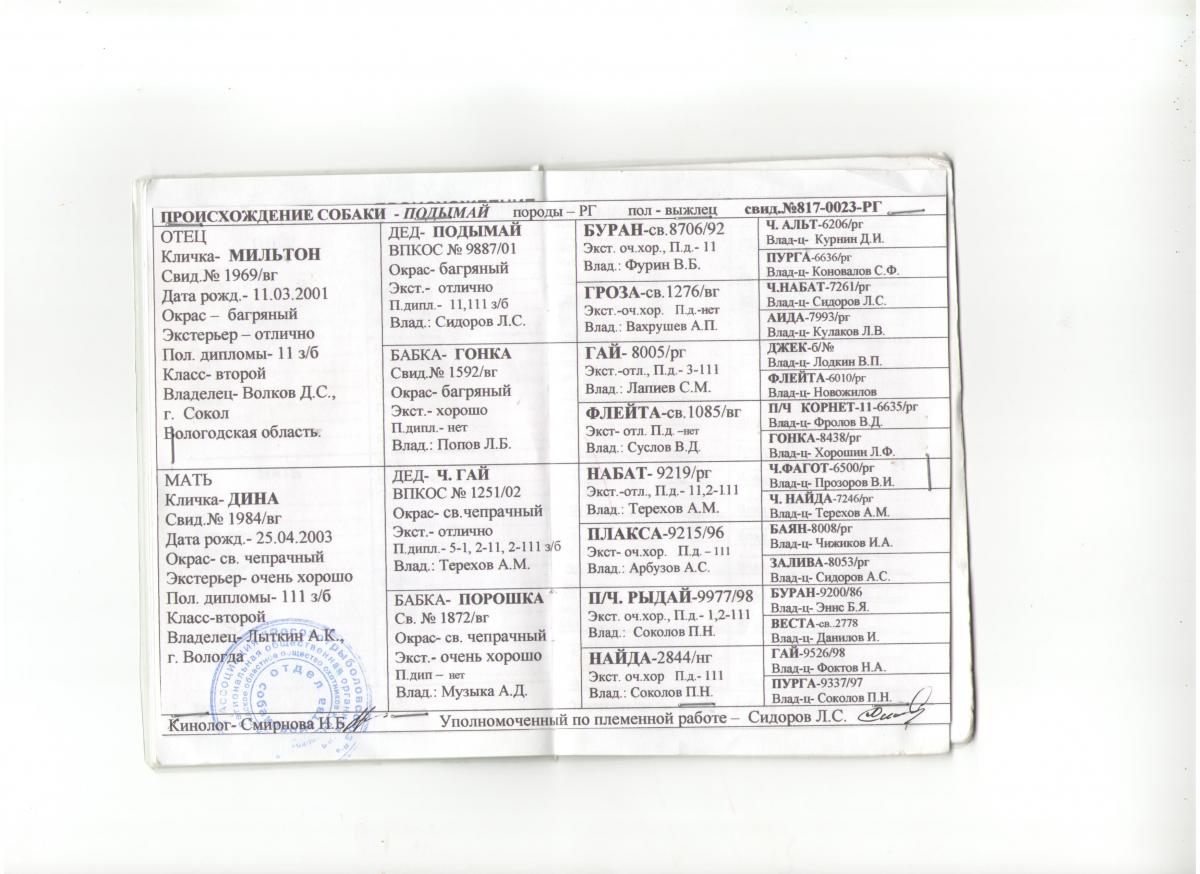 ПРОИСХОЖДЕНИЕ СОБАКИ - ПОДЫМАЙ породы – РГ пол - выжлец свид.№817-0023-РГ
ОТЕЦ
Кличка- МИЛЬТОН
Свид.№ 1969/вг
Дата рожд.- 11.03.2001
Окрас – багряный
Экстерьер – отлично
Пол. дипломы- 11 з/б
Класс- второй
Владелец- Волков Д.С.,
г. Сокол
Вологодская область.
МАТЬ
Кличка- ДИНА
Свид.№ 1984/вг
Дата рожд.- 25.04.2003
Окрас- св. чепрачный
Экстерьер- очень хорошо
Пол. дипломы- 111 з/б
Класс-второй
Владелец- Лыткин А.К.,
г. Вологда
ДЕД- ПОДЫМАЙ
ВПКОС № 9887/01
Окрас- багряный
Экст.- отлично
П.дипл.- 11,111 з/б
Влад.: Сидоров Л.С.
БАБКА- ГОНКА
Свид.№ 1592/вг
Окрас- багряный
Экст.- хорошо
П.дипл.- нет
Влад.: Попов Л.Б.
ДЕД- Ч. ГАЙ
ВПКОС № 1251/02
Окрас- св.чепрачный
Экст.- отлично
П.дипл.- 5-1, 2-11, 2-111 з/б
Влад.: Терехов А.М.
БАБКА- ПОРОШКА
Св. № 1872/вг
Окрас- св. чепрачный
Экст.- очень хорошо
П.дип – нет
Влад.: Музыка А.Д.
БУРАН-св.8706/92
Экст. оч.хор., П.д.- 11
Влад.: Фурин В.Б.
ГРОЗА-св.1276/вг
Экст.-оч.хор. П.д.-нет
Влад.: Вахрушев А.П.
ГАЙ- 8005/рг
Экст.-отл., П.д.- 3-111
Влад.: Лапиев С.М.
ФЛЕЙТА-св.1085/вг
Экст- отл. П.д. –нет
Влад.: Суслов В.Д.
НАБАТ- 9219/рг
Экст.-отл., П.д.- 11,2-111
Влад.: Терехов А.М.
ПЛАКСА-9215/96
Экст- оч.хор. П.д. – 111
Влад.: Арбузов А.С.
П/Ч. РЫДАЙ-9977/98
Экст. оч.хор., П.д.- 1,2-111
Влад.: Соколов П.Н.
НАЙДА-2844/нг
Экст. оч.хор П.д.- 111
Влад.: Соколов П.Н.
Ч. АЛЬТ-6206/рг
Влад-ц- Курнин Д.И.
ПУРГА-6636/рг
Влад-ц- Коновалов С.Ф.
Ч.НАБАТ-7261/рг
Влад-ц- Сидоров Л.С.
АИДА-7993/рг
Влад-ц- Кулаков Л.В.
ДЖЕК-б/№
Влад-ц- Лодкин В.П.
ФЛЕЙТА-6010/рг
Влад-ц- Новожилов
П/Ч КОРНЕТ-11-6635/рг
Влад-ц- Фролов В.Д.
ГОНКА-8438/рг
Влад-ц- Хорошин Л.Ф.
Ч.ФАГОТ-6500/рг
Влад-ц- Прозоров В.И.
Ч. НАЙДА-7246/рг
Влад-ц- Терехов А.М.
БАЯН-8008/рг
Влад-ц- Чижиков И.А.
ЗАЛИВА-8053/рг
Влад-ц- Сидоров А.С.
БУРАН-9200/86
Влад-ц- Эннс Б.Я.
ВЕСТА-св..2778
Влад-ц- Данилов И.
ГАЙ-9526/98
Влад-ц- Фоктов Н.А.
ПУРГА-9337/97
Влад-ц- Соколов П.Н.
Кинолог- Смирнова И.Б. Уполномоченный по племенной работе – Сидоров Л.С.
отдел